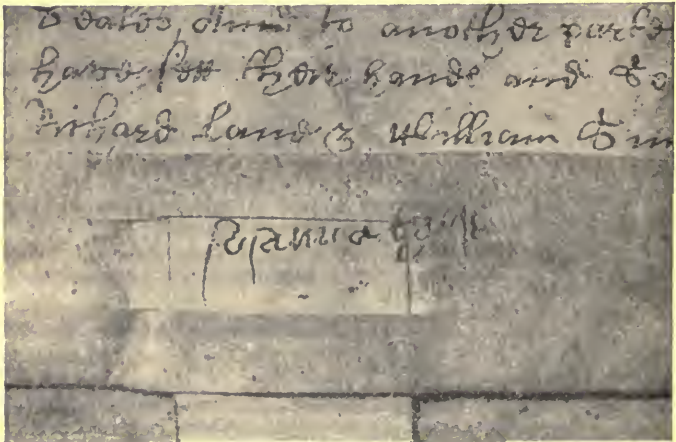 Seales, And to another parte
have sett their hands and Se
Richard Lane & William Sm
Susanna Hall